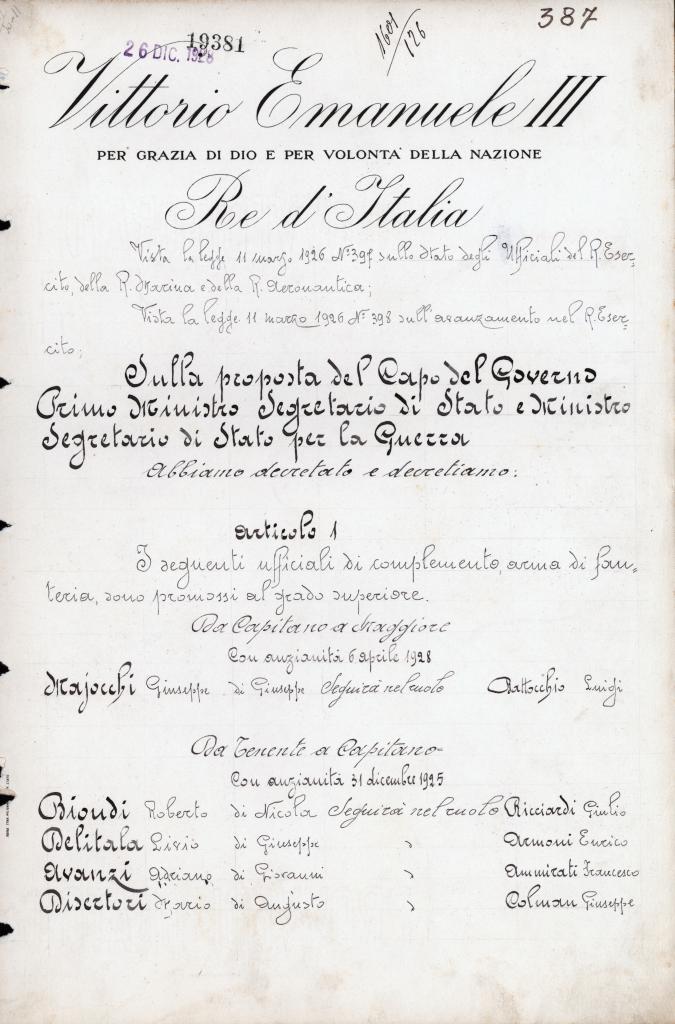 387
19381
26 DIC. 1928
1601/126
Vittorio Emanuele III
PER GRAZIA DI DIO E PER VOLONTA' DELLA NAZIONE
Re d'Italia
Vista la legge 11 marzo 1926 N° 397 sullo stato degli Ufficiali del R. Eser-
cito, della R. Marina e della R. Aeronautica;
Vista la legge 11 marzo 1926 N° 398 sull'avanzamento nel R. Eser-
cito;
Sulla proposta del Capo del Governo
Primo Ministro Segretario di Stato e Ministro
Segretario di Stato per la Guerra
Abbiamo decretato e decretiamo:
Articolo 1
I seguenti ufficiali di complemento, arma di fan-
teria, sono promossi al grado superiore.
Da Capitano a Maggiore
Con anzianità 6 aprile 1928
Majocchi Giuseppe di Giuseppe Seguirà nel ruolo Battocchio Luigi
Da Tenente a Capitano
Con anzianità 31 dicembre 1925
Biondi Roberto di Nicola Seguirà nel ruolo Ricciardi Giulio
Delitala Livio di Giuseppe " Armoni Enrico
Avanzi Adriano di Giovanni " Ammirati Francesco
Disertori Mario di Augusto " Colman Giuseppe